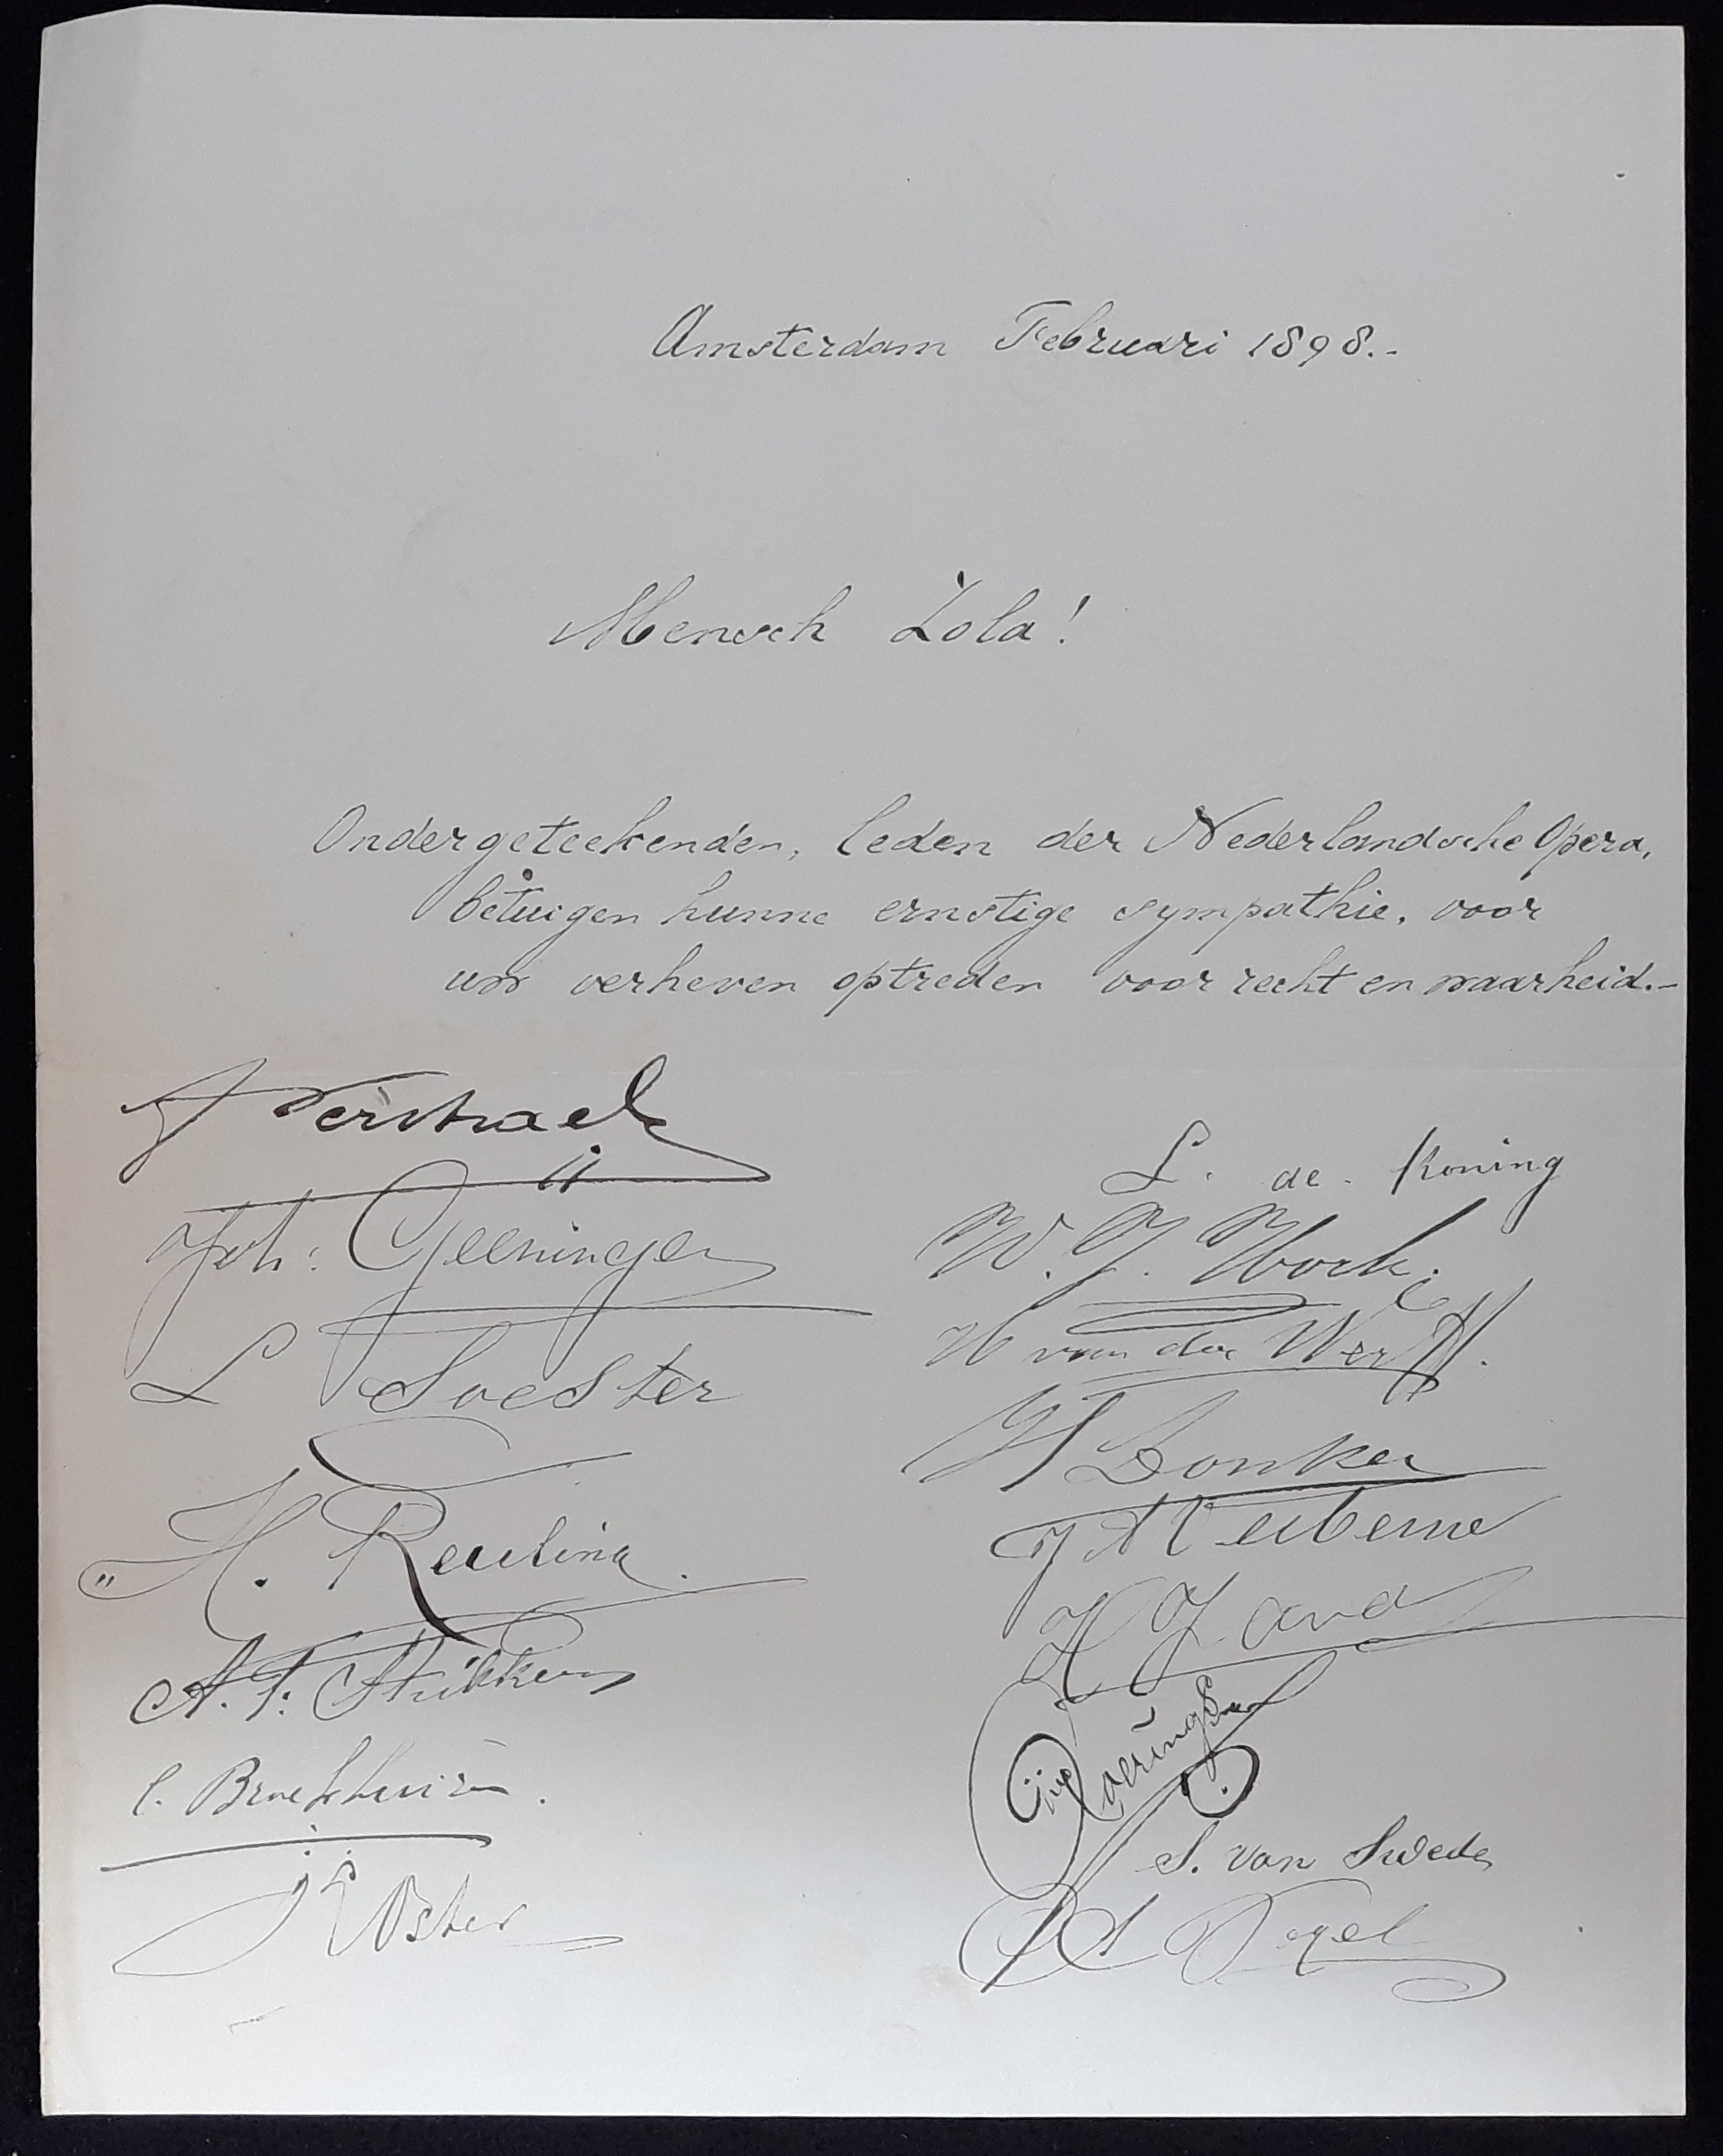 Amsterdam Februari 1898.-
Mensch Zola!
Ondergeteekenden, leden der Nederlandsche Opera,
betuigen hunne ernstige sympathie, voor
uw verheven optreden voor recht en waarheid.-
Verstraete
Joh: Geeninger
L Soester
H. Reuling.
A. F.
C. Broekhuizen.
J Koster
L. de Koning
W. J. Hock.
H van der Werff.
Donker
H Zand
S. van Sweden
S Vogel